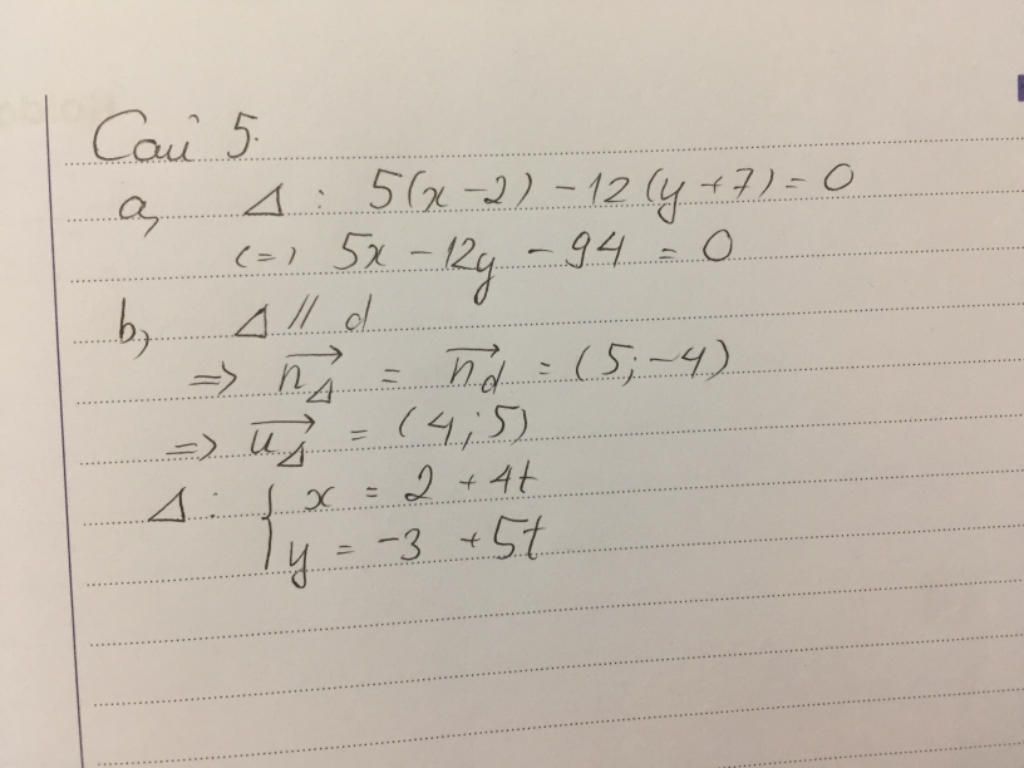 Câu 5.
a, Δ : 5(x - 2) - 12(y + 7) = 0
(=) 5x - 12y - 94 = 0
b, Δ // d
=> \overrightarrow{n_Δ} = \overrightarrow{n_d} = (5; -4)
=> \overrightarrow{u_Δ} = (4; 5)
Δ : { x = 2 + 4t
y = -3 + 5t